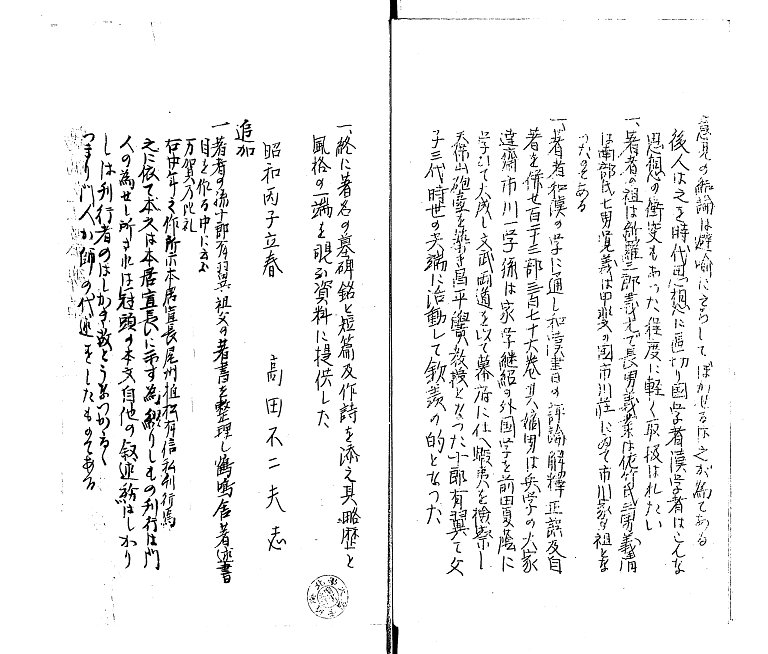 意見の結論は譬喩に えらしてぼかせるは之が為である
後人は之を時代思想に 切り国学者漢学者はこんな
思想の衝突もあった程度に軽く取扱はれたい
一、著者の祖は新羅三郎義光で長男義業は佐竹氏三男義清
は南部氏七男覚義は甲斐の国市川荘にゐて市川家の祖とな
つたのである
一、著者和漢の学に通し和漢書目の評論解釋正誤及自
著を併せ百二十三部三百七十六巻 嫡男は兵学の大家
達斎市川一学 後は家学継紹の外国学を前田夏蔭に
学びて大成し文武両道を以て幕府に仕へ蝦夷を検察し
天保山砲臺を築き昌平黌教授となつた十郎有翼で父
子三代時世の尖端に活動して欽羨の的となつた
一、終に著名の墓碑銘と短篇及作詩を添え其略歴と
風格の一端を覗ふ資料に提供した
昭和丙子立春 高田不二夫志
追加
一 著者の孫十郎有翼祖父の著書を整理し鶴鳴舎著述書
目を作る中に云ふ
万賀乃比礼
右中年之作所示本居宣長尾州植松有信私刊行焉
之に依て本文は本居宣長に示す為綴りしもの刊行は門
人の為せし所されは冠頭の本文自他の叙述紛はしかり
しは刊行者のはしかき故どうりつかるゝ
つまり門人か師の代述をしたものである